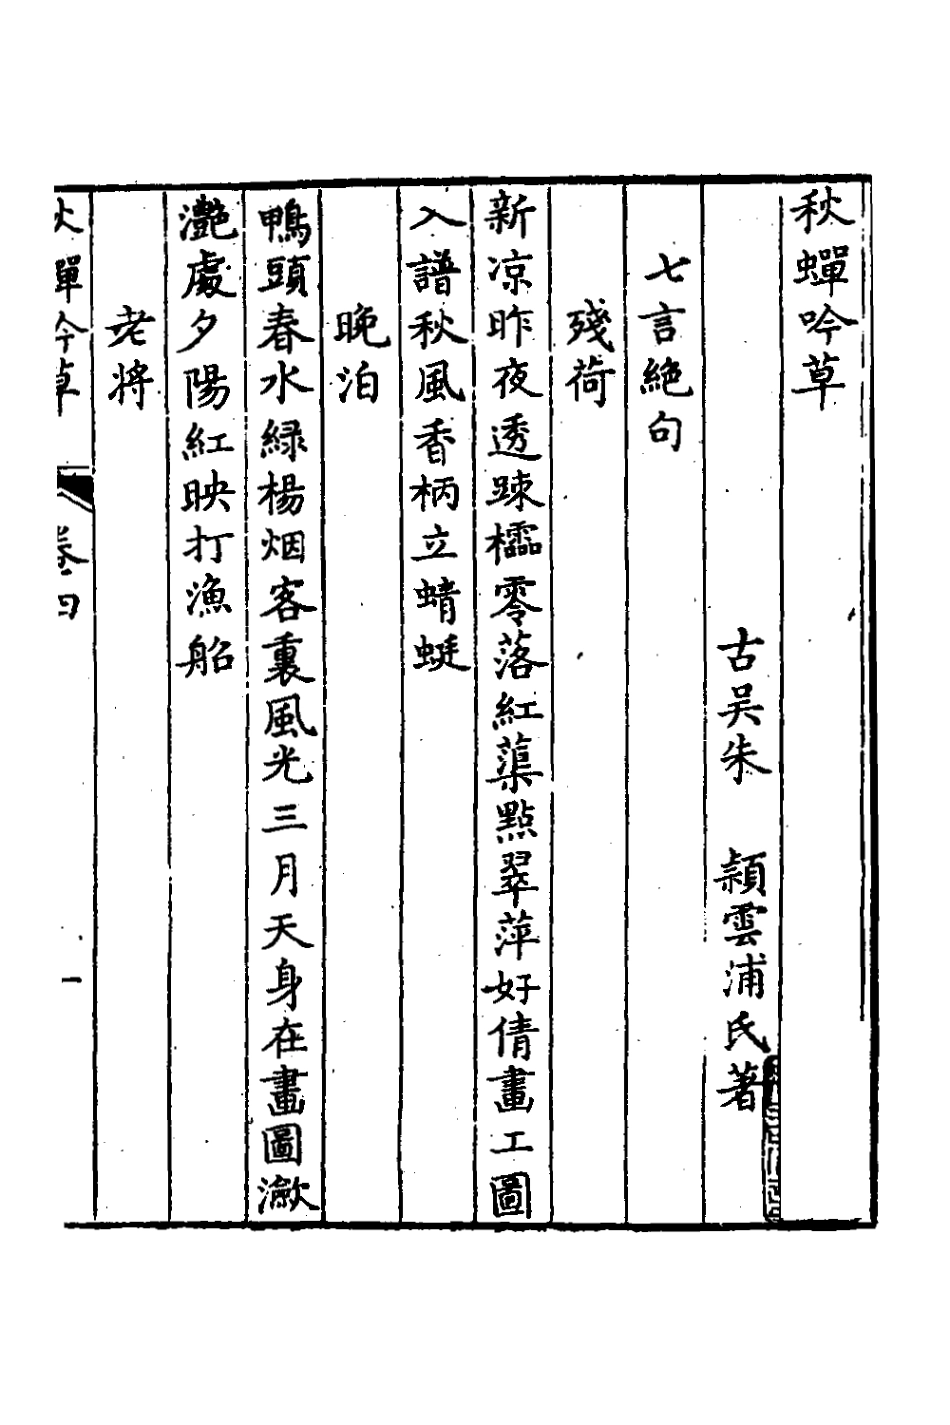 秋蟬吟草
七言絕句
古吳朱　穎雲浦氏著
殘荷
新凉昨夜透踈櫺零落紅蕖點翠萍好倩畫工圖
入譜秋風香柄立蜻蜓
晚泊
鴨頭春水緑楊烟客裏風光三月天身在畫圖瀲
灔處夕陽紅映打漁船
老將
秋蟬吟草　卷四　一